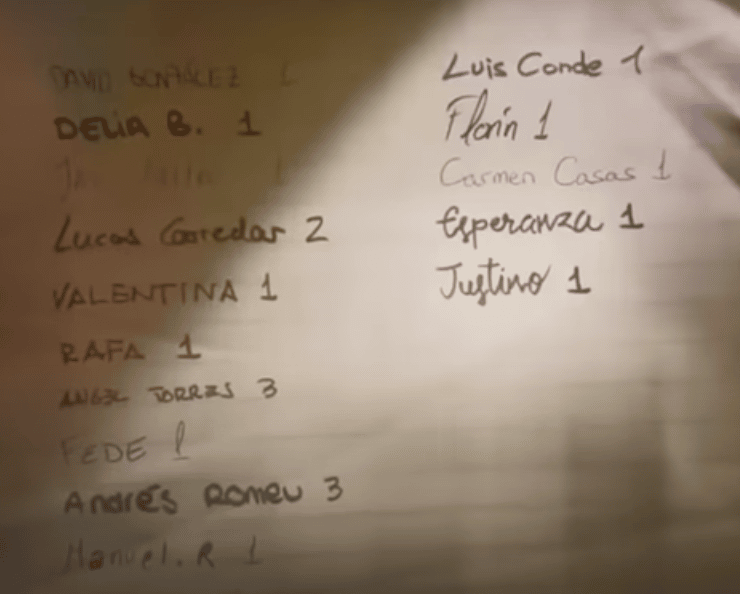 DAVID GONZÁLEZ 1
DELIA B. 1
1
Lucas Corredor 2
VALENTINA 1
RAFA 1
ANGEL TORRES 3
FEDE 1
Andrés Romeu 3
Manuel. R 1
Luis Conde 1
Florín 1
Carmen Casas 1
Esperanza 1
Justino 1